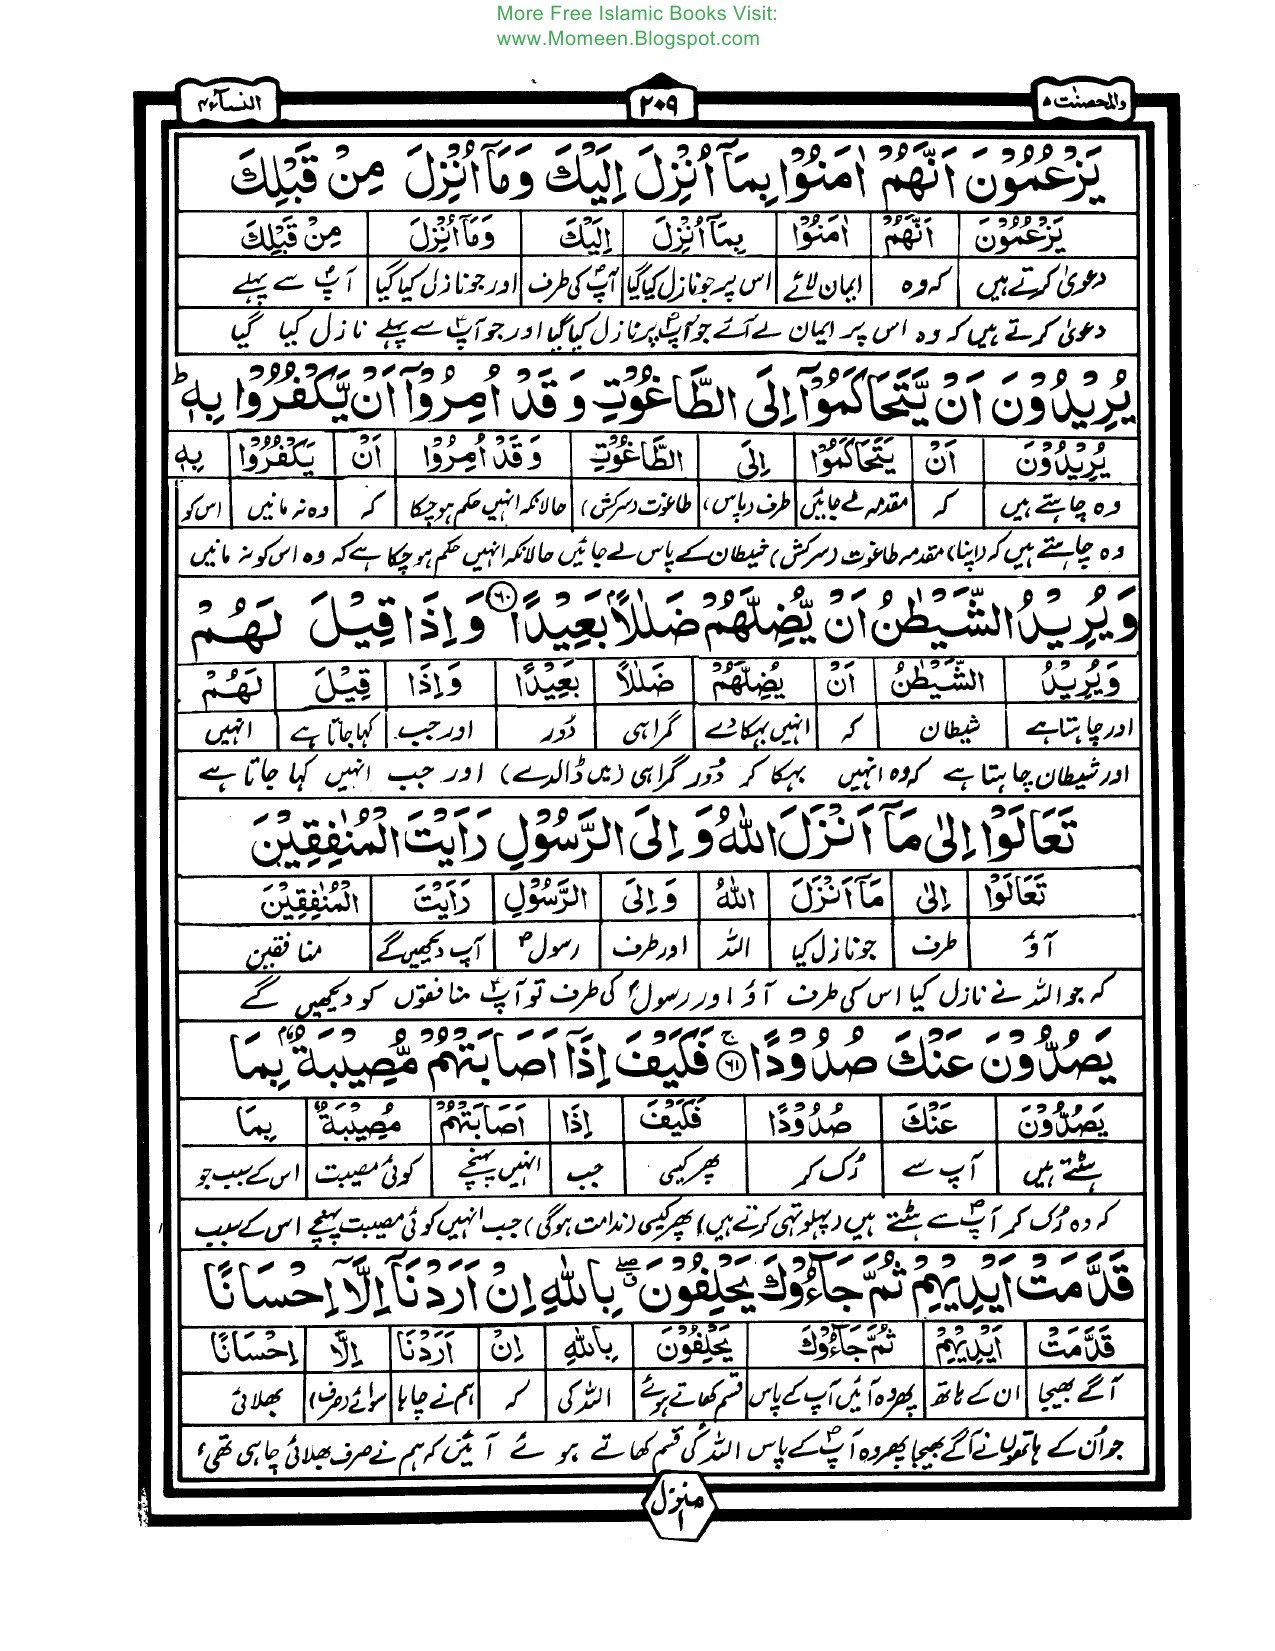 More Free Islamic Books Visit:
www.Momeen.Blogspot.com
والمحصنت ۵ ۲۰۹ النسآء ۴
يَزْعُمُوْنَ اَنَّهُمْ اٰمَنُوْا بِمَآ اُنْزِلَ اِلَيْكَ وَمَآ اُنْزِلَ مِنْ قَبْلِكَ
يَزْعُمُوْنَ اَنَّهُمْ اٰمَنُوْا بِمَآ اُنْزِلَ اِلَيْكَ وَمَآ اُنْزِلَ مِنْ قَبْلِكَ
دعویٰ کرتے ہیں کہ وہ ایمان لائے اس پر جو نازل کیا گیا آپؐ کی طرف اور جو نازل کیا گیا آپؐ سے پہلے
دعویٰ کرتے ہیں کہ وہ اس پر ایمان لے آئے جو آپؐ پر نازل کیا گیا اور جو آپؐ سے پہلے نازل کیا گیا
يُرِيْدُوْنَ اَنْ يَّتَحَاكَمُوْٓا اِلَى الطَّاغُوْتِ وَقَدْ اُمِرُوْٓا اَنْ يَّكْفُرُوْا بِهٖ ؕ
يُرِيْدُوْنَ اَنْ يَتَحَاكَمُوْٓا اِلَى الطَّاغُوْتِ وَقَدْ اُمِرُوْٓا اَنْ يَكْفُرُوْا بِهٖ
وہ چاہتے ہیں کہ مقدمہ لے جائیں طرف (پاس) طاغوت (سرکش) حالانکہ انہیں حکم ہو چکا کہ وہ نہ مانیں اس کو
وہ چاہتے ہیں کہ (اپنا) مقدمہ طاغوت (سرکش) شیطان کے پاس لے جائیں حالانکہ انہیں حکم ہو چکا ہے کہ وہ اس کو نہ مانیں
وَيُرِيْدُ الشَّيْطٰنُ اَنْ يُّضِلَّهُمْ ضَلٰلًا ۢ بَعِيْدًا ۶۰ وَاِذَا قِيْلَ لَهُمْ
وَيُرِيْدُ الشَّيْطٰنُ اَنْ يُضِلَّهُمْ ضَلٰلًا بَعِيْدًا وَاِذَا قِيْلَ لَهُمْ
اور چاہتا ہے شیطان کہ انہیں بہکا دے گمراہی دُور اور جب کہا جاتا ہے انہیں
اور شیطان چاہتا ہے کہ وہ انہیں بہکا کر دُور گمراہی (میں ڈال دے) اور جب انہیں کہا جاتا ہے
تَعَالَوْا اِلٰى مَآ اَنْزَلَ اللّٰهُ وَاِلَى الرَّسُوْلِ رَاَيْتَ الْمُنٰفِقِيْنَ
تَعَالَوْا اِلٰى مَآ اَنْزَلَ اللّٰهُ وَاِلَى الرَّسُوْلِ رَاَيْتَ الْمُنٰفِقِيْنَ
آؤ طرف جو نازل کیا اللہ اور طرف رسولؐ آپ دیکھیں گے منافقین
کہ جو اللہ نے نازل کیا اس کی طرف آؤ اور رسولؐ کی طرف تو آپؐ منافقوں کو دیکھیں گے
يَصُدُّوْنَ عَنْكَ صُدُوْدًا ۚ ۶۱ فَكَيْفَ اِذَآ اَصَابَتْهُمْ مُّصِيْبَةٌ ۢ بِمَا
يَصُدُّوْنَ عَنْكَ صُدُوْدًا فَكَيْفَ اِذَا اَصَابَتْهُمْ مُصِيْبَةٌ بِمَا
ہٹتے ہیں آپ سے رُک کر پھر کیسی جب انہیں پہنچے کوئی مصیبت اس کے سبب جو
کہ وہ رُک کر آپؐ سے ہٹتے ہیں (پہلو تہی کرتے ہیں) پھر کیسی (ندامت ہوگی) جب انہیں کوئی مصیبت پہنچے اس کے سبب
قَدَّمَتْ اَيْدِيْهِمْ ثُمَّ جَآءُوْكَ يَحْلِفُوْنَ ۖ بِاللّٰهِ اِنْ اَرَدْنَآ اِلَّآ اِحْسَانًا
قَدَّمَتْ اَيْدِيْهِمْ ثُمَّ جَآءُوْكَ يَحْلِفُوْنَ بِاللّٰهِ اِنْ اَرَدْنَا اِلَّا اِحْسَانًا
آگے بھیجا ان کے ہاتھ پھر وہ آئیں آپ کے پاس قسم کھاتے ہوئے اللہ کی کہ ہم نے چاہا سوائے (صرف) بھلائی
جو اُن کے ہاتھوں نے آگے بھیجا پھر وہ آپؐ کے پاس اللہ کی قسم کھاتے ہوئے آئیں کہ ہم نے صرف بھلائی چاہی تھی
منزل ۱